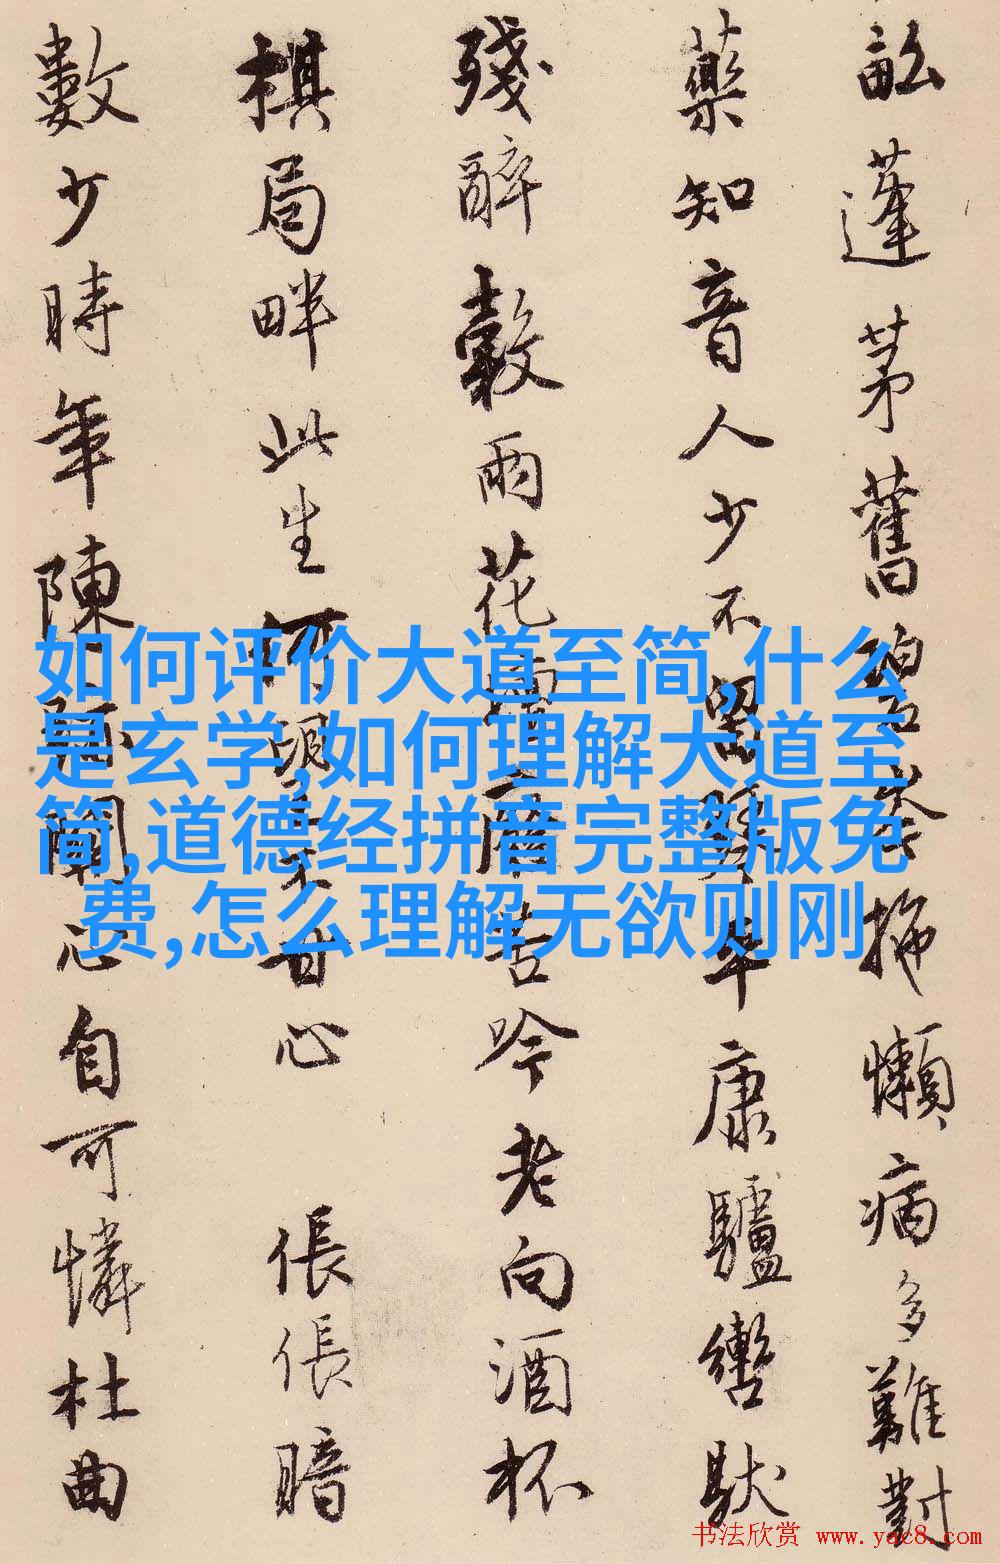 蓬茅舊碧拖懶病多難對
藥知音人少不留琴年康驢轡馱
殘醉穀雨花苦吟老向酒杯
棋局畔此生何甘心 倀倀暗
數少時年陳聞心自可憐杜曲
如何评价大道至简,什么
是玄学,如何理解大道至
简,道德经拼音完整版免
费,怎么理解无欲则刚
书法欣赏 www.yac8.com